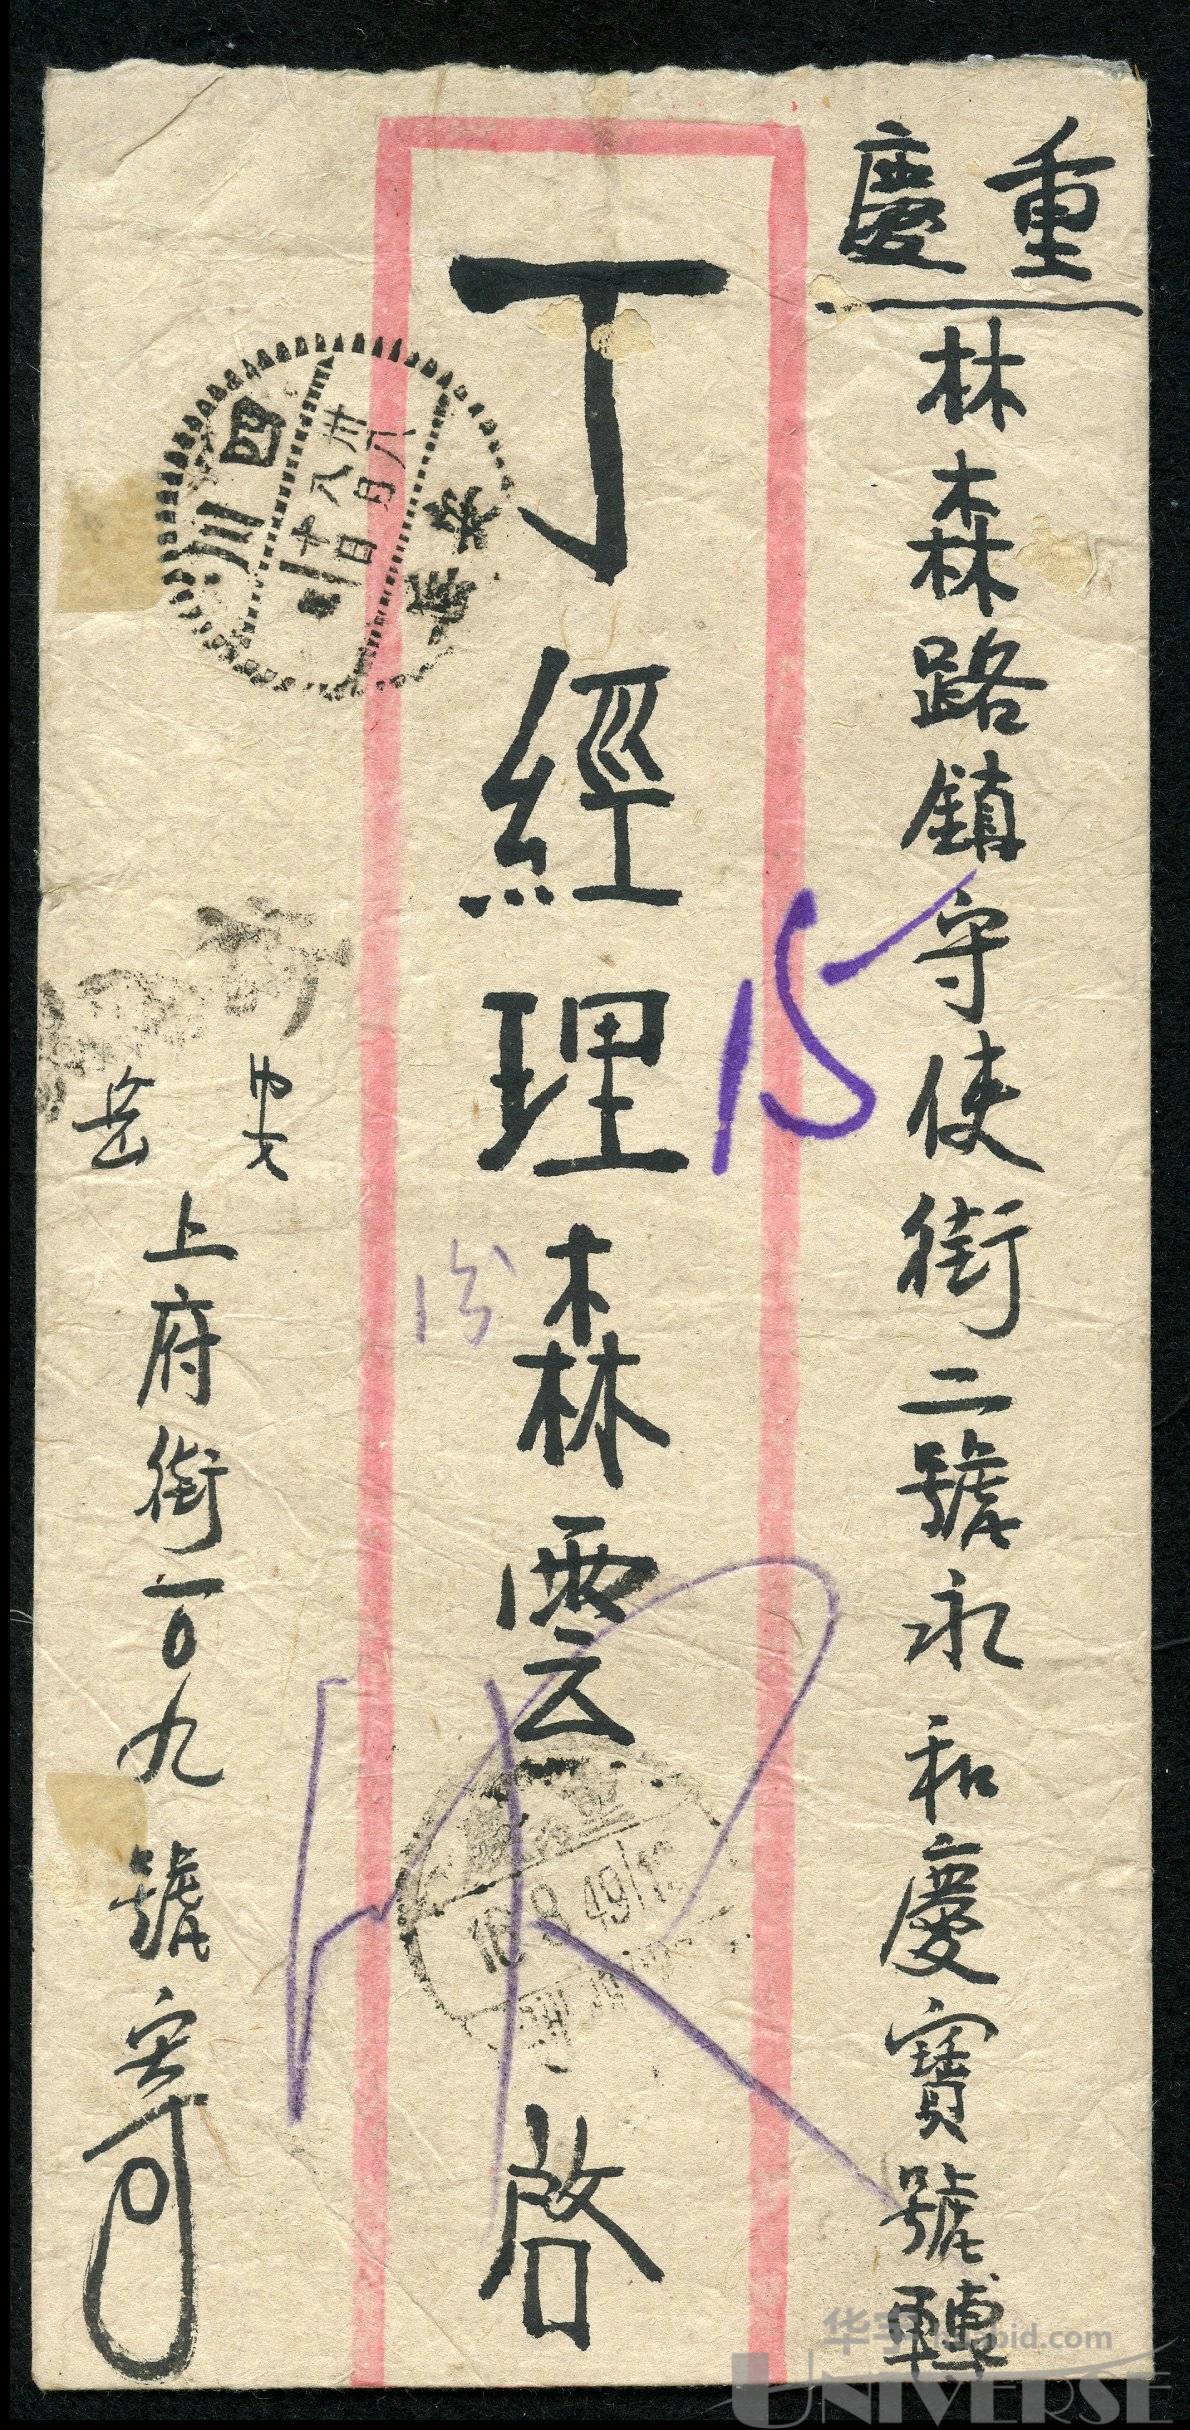 重慶
林森路鎮守使街二號永和慶寶號轉
丁經理森雲啓
15
岳
上府街一〇九號寄
四川
卅八年八月十二日
16.9.49
华宇 huabid.com
UNIVERSE